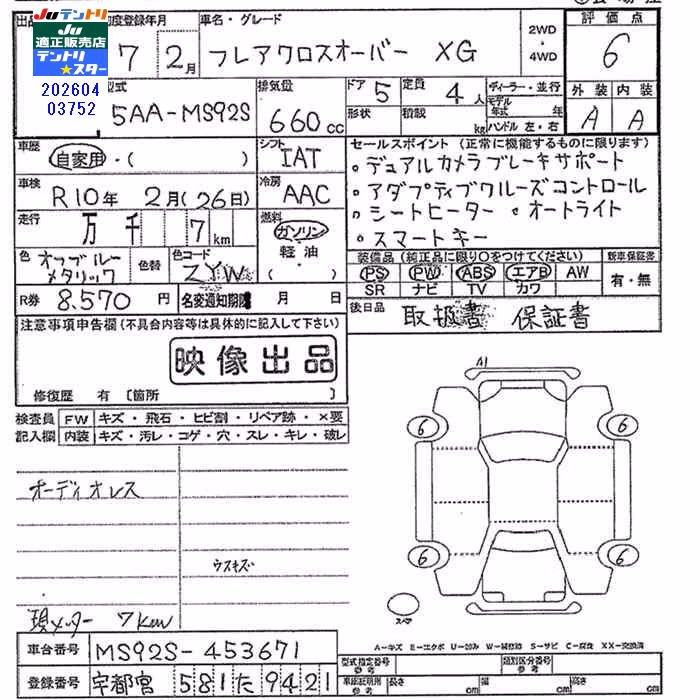 Juテントリ Juテントリ
適正販売店
テントリ
★スター
202604
03752
出品
初度登録年月
7 2月
車名・グレード
フレアクロスオーバー XG
2WD
・
4WD
評価点
6
外装 内装
A A
型式
5AA-MS92S
排気量
660cc
ドア 5
定員 4人
形状
積載 kg
ディーラー・並行
モデル年式 年
ハンドル 左・右
車歴
自家用・( )
シフト
IAT
車検
R10年 2月(26日)
冷房
AAC
走行
万 千 7km
燃料
ガソリン
軽油
色
オフブルーメタリック
色替
色コード
ZYW
R券 8,570円
名変通知期限 月 日
セールスポイント (正常に機能するものに限ります)
。デュアルカメラブレーキサポート
。アダプティブクルーズコントロール
。シートヒーター 。オートライト
。スマートキー
装備品 (純正品に限り○をつけてください)
新車保証書
PS PW ABS エアB AW
SR ナビ TV カワ
有・無
後日品
取扱書 保証書
注意事項申告欄(不具合内容等は具体的に記入して下さい)
映像出品
修復歴 有 〔箇所 〕
検査員
記入欄
FW キズ・飛石・ヒビ割・リペア跡・×要
内装 キズ・汚レ・コゲ・穴・スレ・キレ・破レ
オーディオレス
ウスキズ
現メーター 7km
A1
6 6
6 6
スペア
A-キズ E-エクボ U-凹み W-補修跡 S-サビ C-腐食 XX-交換済
車台番号 MS92S-453671
登録番号 宇都宮 581 た 9421
型式指定番号
参考
類別区分番号
参考
車両証明用
参考
長さ cm 幅 cm 高さ cm